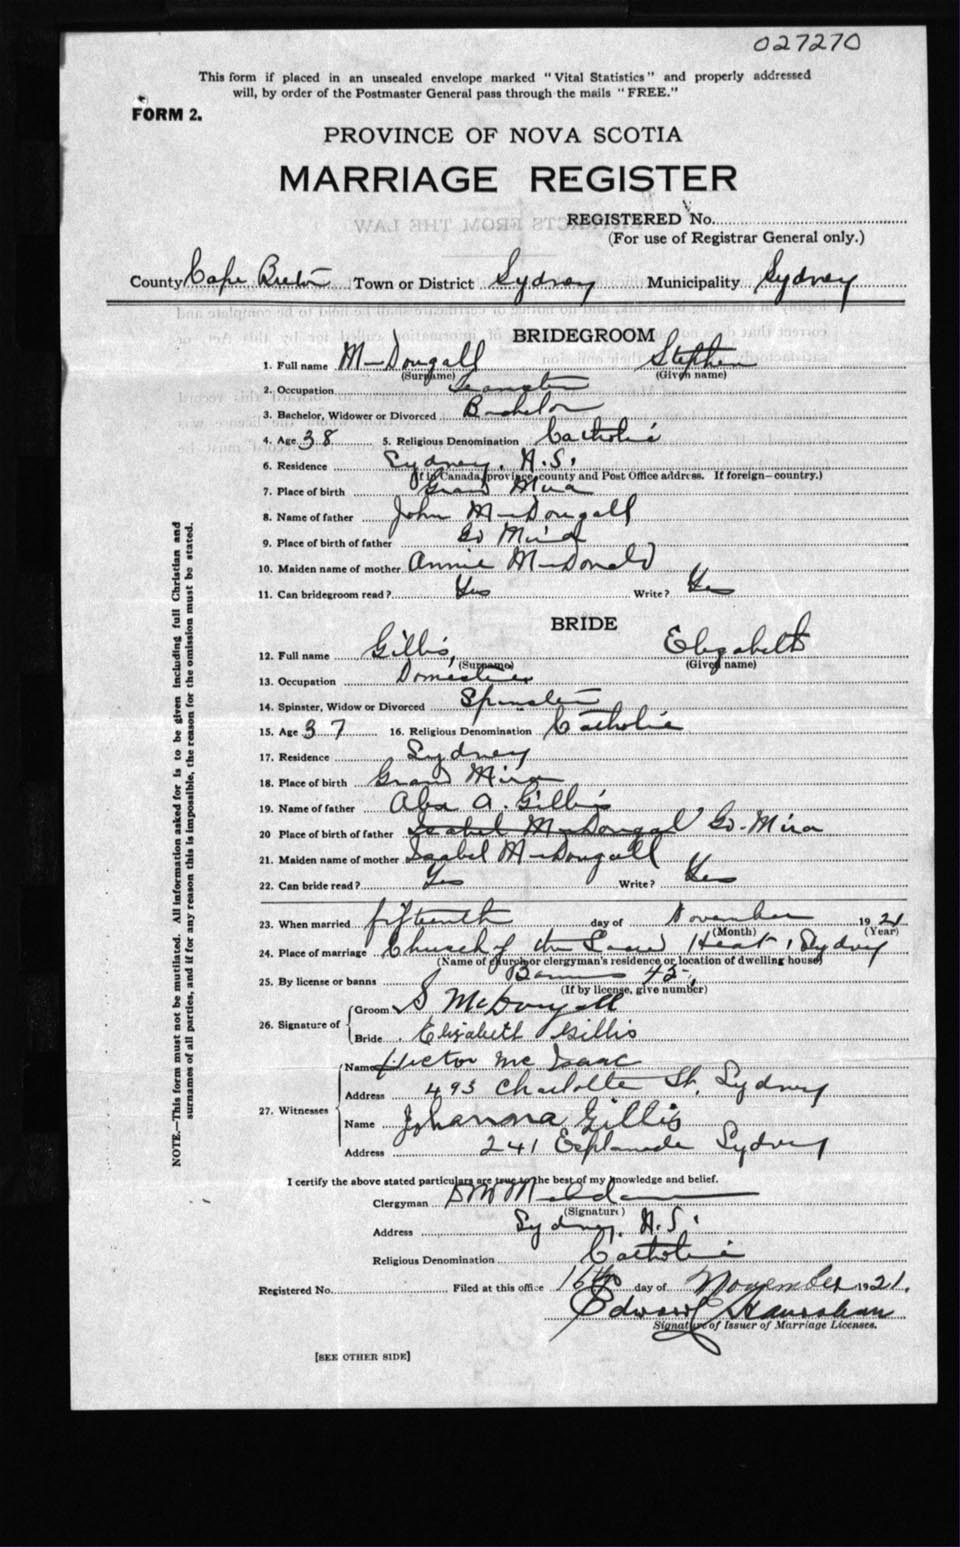 027270
This form if placed in an unsealed envelope marked "Vital Statistics" and properly addressed
will, by order of the Postmaster General pass through the mails "FREE."
FORM 2.
PROVINCE OF NOVA SCOTIA
MARRIAGE REGISTER
REGISTERED No.
(For use of Registrar General only.)
County Cape Breton Town or District Sydney Municipality Sydney
BRIDEGROOM
1. Full name McDougall Stephen
(Surname) (Given name)
2. Occupation Teamster
3. Bachelor, Widower or Divorced Bachelor
4. Age 38 5. Religious Denomination Catholic
6. Residence Sydney, N.S.
(If in Canada, province, county and Post Office address. If foreign—country.)
7. Place of birth Grand Mira
8. Name of father John McDougall
9. Place of birth of father Gd Mira
10. Maiden name of mother Annie McDonald
11. Can bridegroom read? Yes Write? Yes
BRIDE
12. Full name Gillis, Elizabeth
(Surname) (Given name)
13. Occupation Domestic
14. Spinster, Widow or Divorced Spinster
15. Age 37 16. Religious Denomination Catholic
17. Residence Sydney
18. Place of birth Grand Mira
19. Name of father Alex A. Gillis
20 Place of birth of father Isabel McDougal Gd. Mira
21. Maiden name of mother Isabel McDougall
22. Can bride read? Yes Write? Yes
23. When married fifteenth day of November 1921
(Month) (Year)
24. Place of marriage Church of the Sacred Heart, Sydney
(Name of church or clergyman's residence or location of dwelling house)
25. By license or banns Banns
(If by license, give number)
26. Signature of Groom S McDougall
Bride Elizabeth Gillis
27. Witnesses Name Hector McIsaac
Address 493 Charlotte St. Sydney
Name Johanna Gillis
Address 241 Esplanade Sydney
I certify the above stated particulars are true to the best of my knowledge and belief.
Clergyman
(Signature)
Address Sydney, N.S.
Religious Denomination Catholic
Registered No. Filed at this office 16th day of November 1921.
Edward
Signature of Issuer of Marriage Licenses.
[SEE OTHER SIDE]
NOTE.—This form must not be mutilated. All information asked for is to be given including full Christian and
surnames of all parties, and if for any reason this is impossible, the reason for the omission must be stated.